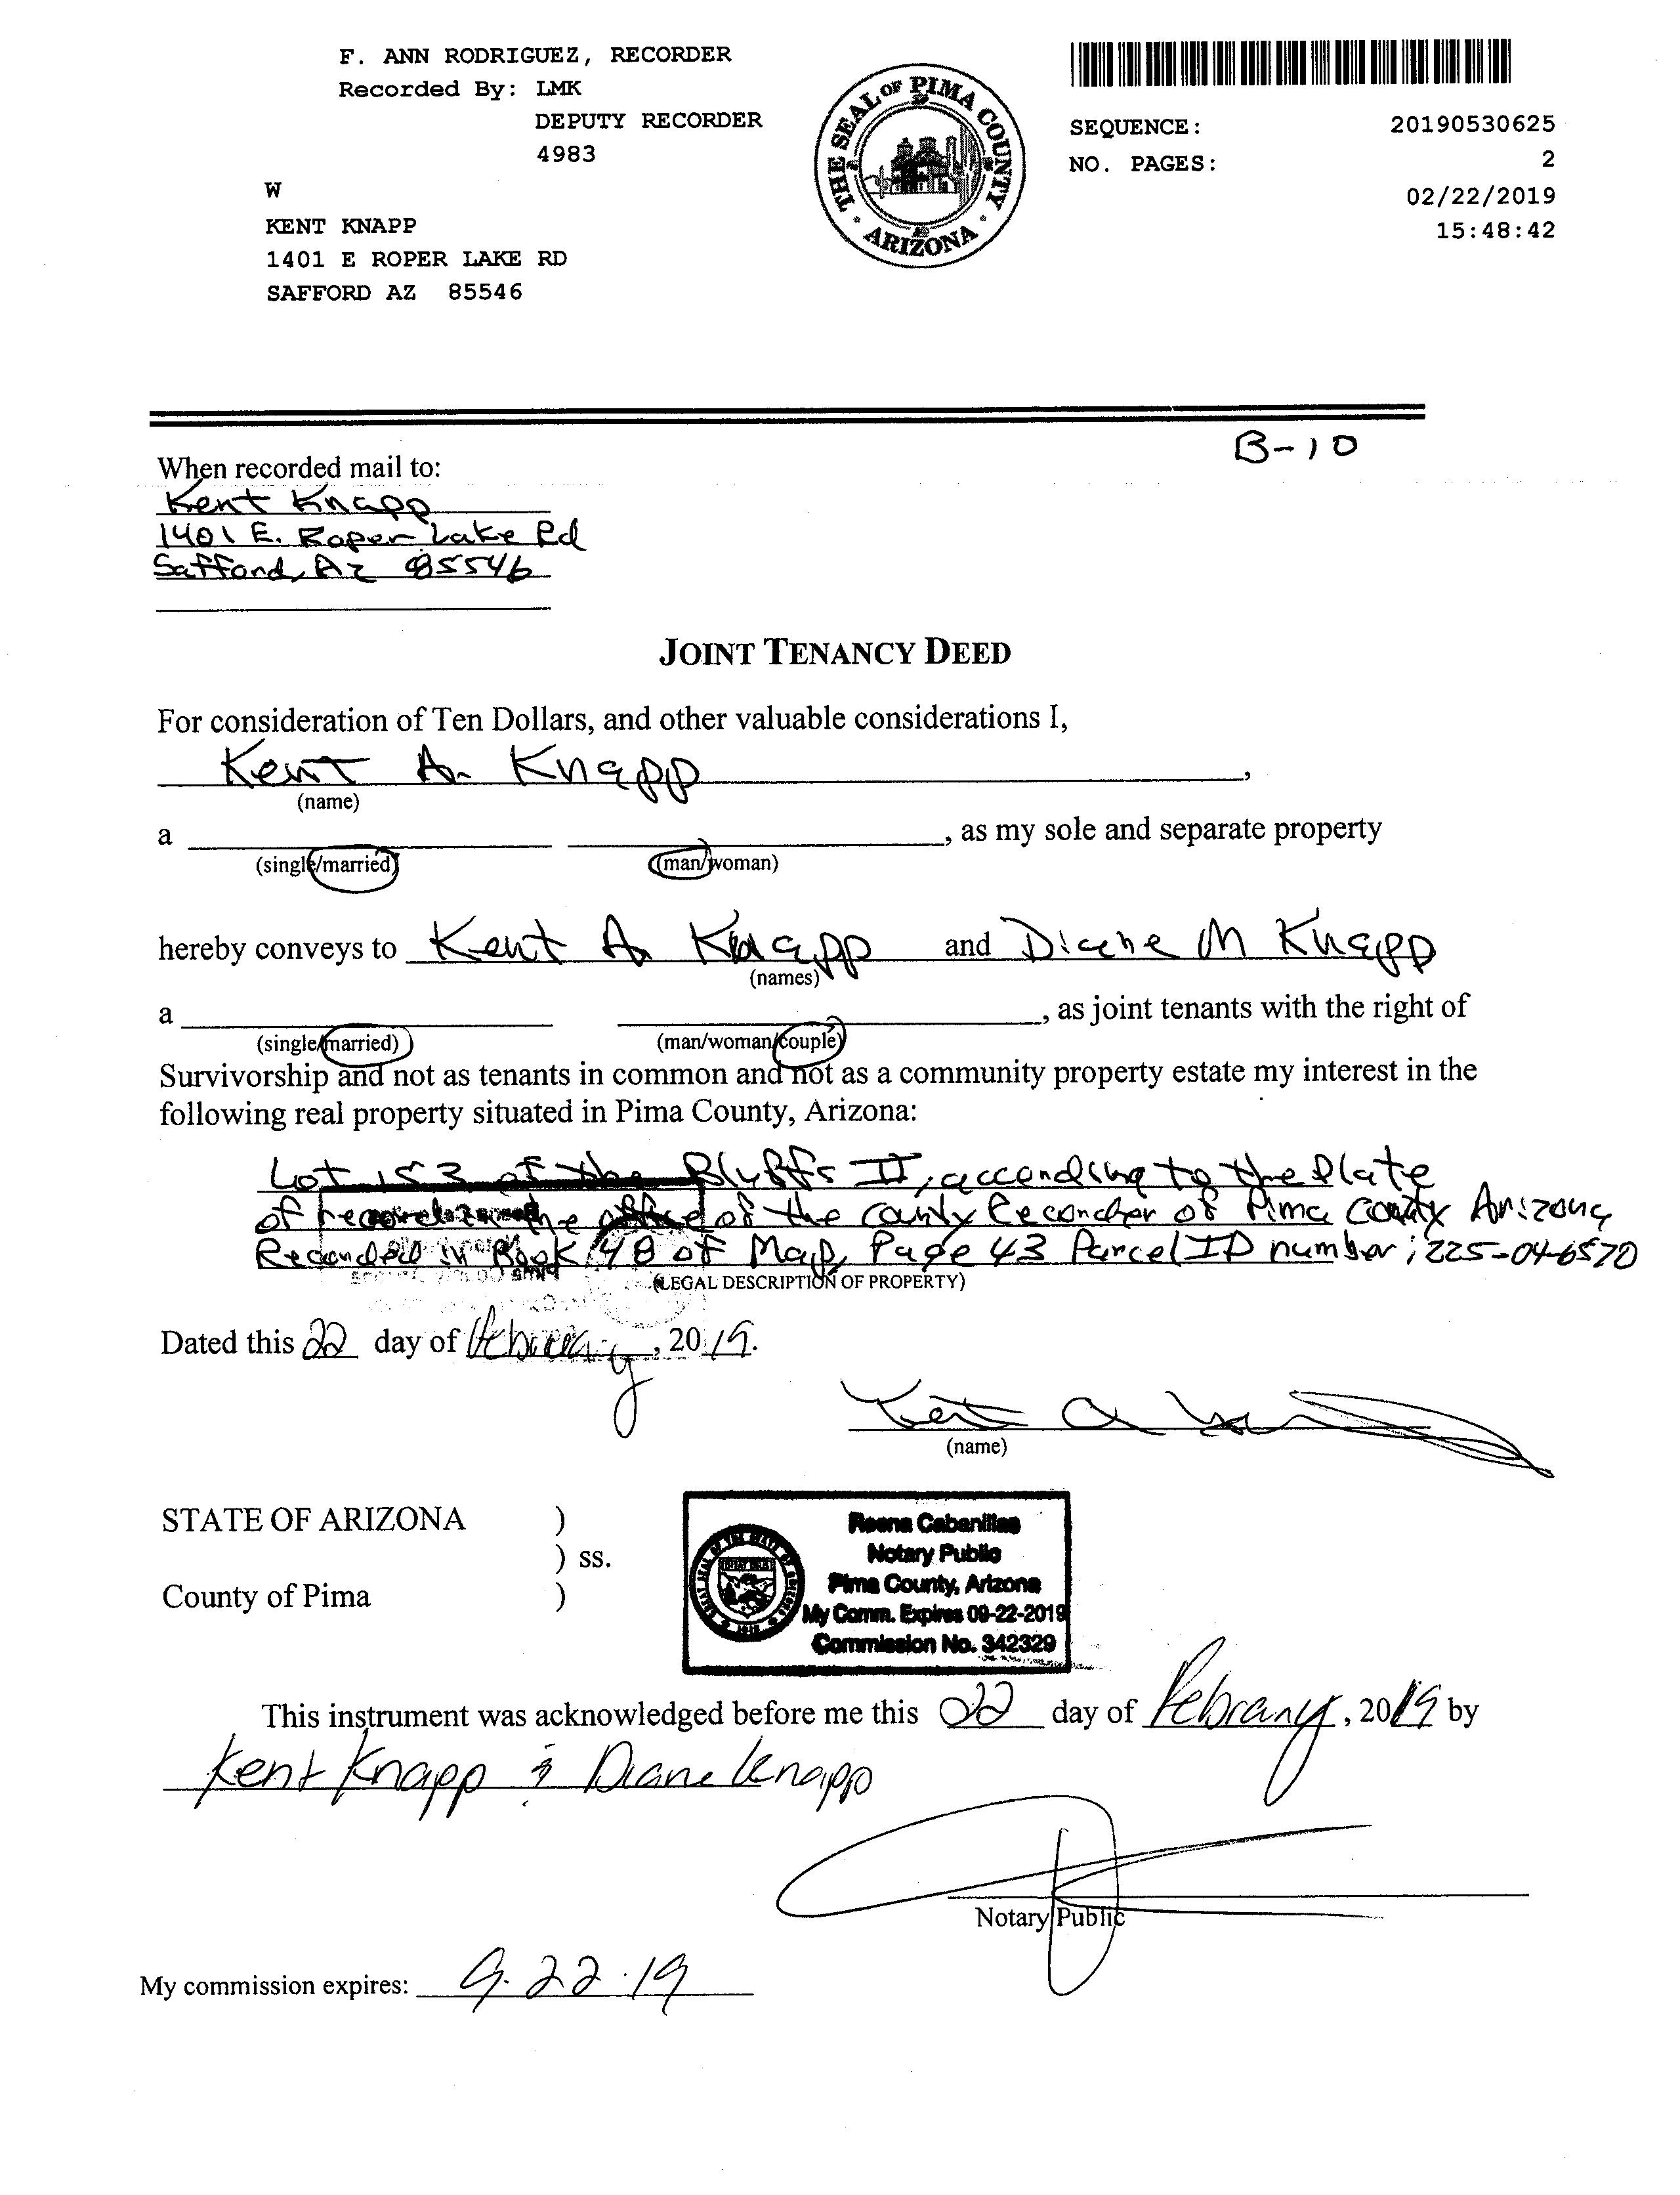 F. ANN RODRIGUEZ, RECORDER
Recorded By: LMK
DEPUTY RECORDER
4983
W
KENT KNAPP
1401 E ROPER LAKE RD
SAFFORD AZ 85546
THE SEAL OF PIMA COUNTY
ARIZONA
SEQUENCE: 20190530625
NO. PAGES: 2
02/22/2019
15:48:42
B-10
When recorded mail to:
Kent Knapp
1401 E. Roper Lake Rd
Safford, Az 85546
JOINT TENANCY DEED
For consideration of Ten Dollars, and other valuable considerations I,
Kent A. Knapp,
(name)
a , as my sole and separate property
(single/married) (man/woman)
hereby conveys to Kent A Knapp and Diane M Knapp
(names)
a , as joint tenants with the right of
(single/married) (man/woman/couple)
Survivorship and not as tenants in common and not as a community property estate my interest in the
following real property situated in Pima County, Arizona:
Lot 153 of the Bluffs II, according to the Plate
of record in the office of the county Recorder of Pima County Arizona
Recorded in Book 48 of Map, Page 43 Parcel ID number; 225-04-6570
(LEGAL DESCRIPTION OF PROPERTY)
Dated this 22 day of February, 2019.
Kent A
(name)
STATE OF ARIZONA )
) ss.
County of Pima )
Reena Cabanillas
Notary Public
Pima County, Arizona
My Comm. Expires 09-22-2019
Commission No. 342329
This instrument was acknowledged before me this 22 day of Febrary, 2019 by
Kent Knapp & Diane Knapp
Notary Public
My commission expires: 9.22.19